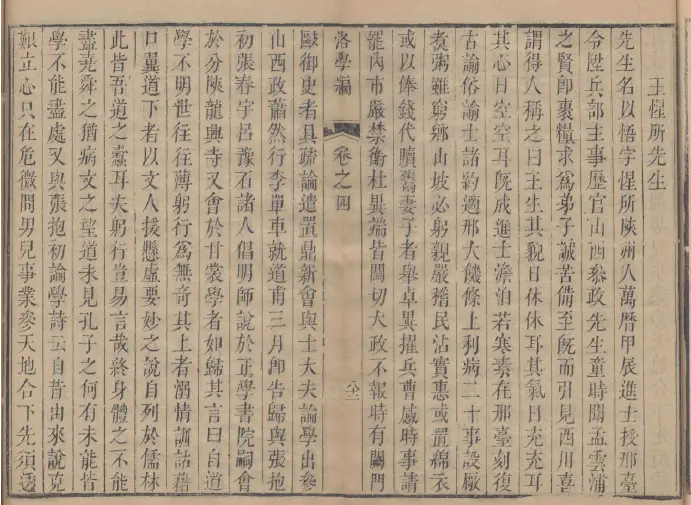 王惺所先生
先生名以悟字惺所陝州人萬曆甲辰進士授邢臺
令陞兵部主事歷官山西叅政先生童時聞孟雲浦
之賢卽裹糧求爲弟子誠苦備至旣而引見西川喜
謂得人稱之曰王生其貌日休休耳其氣日充充耳
其心日空空耳旣成進士澹泊若寒素在邢臺刻復
古諭俗諭士諸約邇邢大饑條上利病二十事設厰
煑粥雖窮鄉山坡必躬親嚴稽民沾實惠或置綿衣
或以俸錢代贖鬻妻子者舉卓異擢兵曹慼時事請
罷内市嚴禁衞杜異端皆關切大政不報時有關門
洛學編
卷之四
歐御史者具疏論遣置鼎新會與士大夫論學出叅
山西政蕭然行李單車就道甫三月卽告歸與張抱
初張春宇呂豫石諸人倡明師說於正學書院嗣會
於分陝龍興寺又會於甘棠學者如歸其言曰自道
學不明世往往薄躬行爲無奇其上者溺情訓詁藉
口異道下者以文人援懸虛要妙之說自列於儒林
此皆吾道之蠧耳夫躬行豈易言哉終身體之不能
盡堯舜之猶病文之望道未見孔子之何有未能皆
學不能盡處又與張抱初論學詩云自昔由來說克
艱立心只在危微間男兒事業叅天地合下先須透